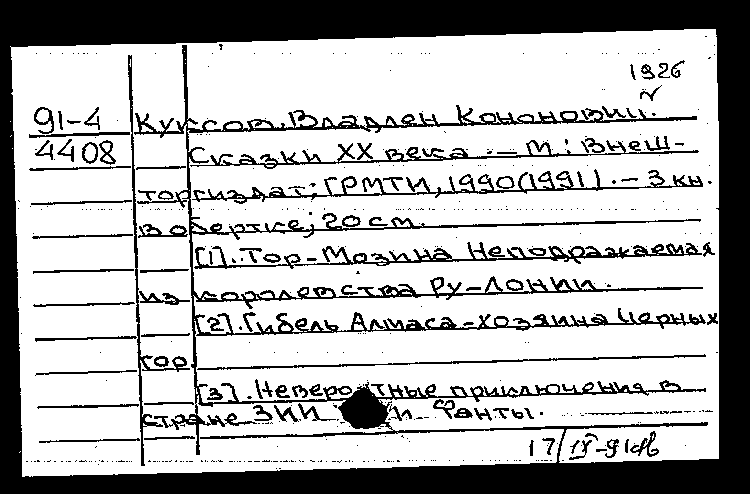 1926
91-4 Куксов, Владлен Кононович.
4408 Сказки XX века. — М.: Внеш-
торгиздат; ГРМТИ, 1990(1991). — 3 кн.
в обертке; 20 см.
[1]. Тор-Мозина Неподражаемая
из королевства Ру-Лонии.
[2]. Гибель Алмаса-хозяина Черных
гор.
[3]. Невероятные приключения в
стране ЗИИ и Фанты.
17/IX-91